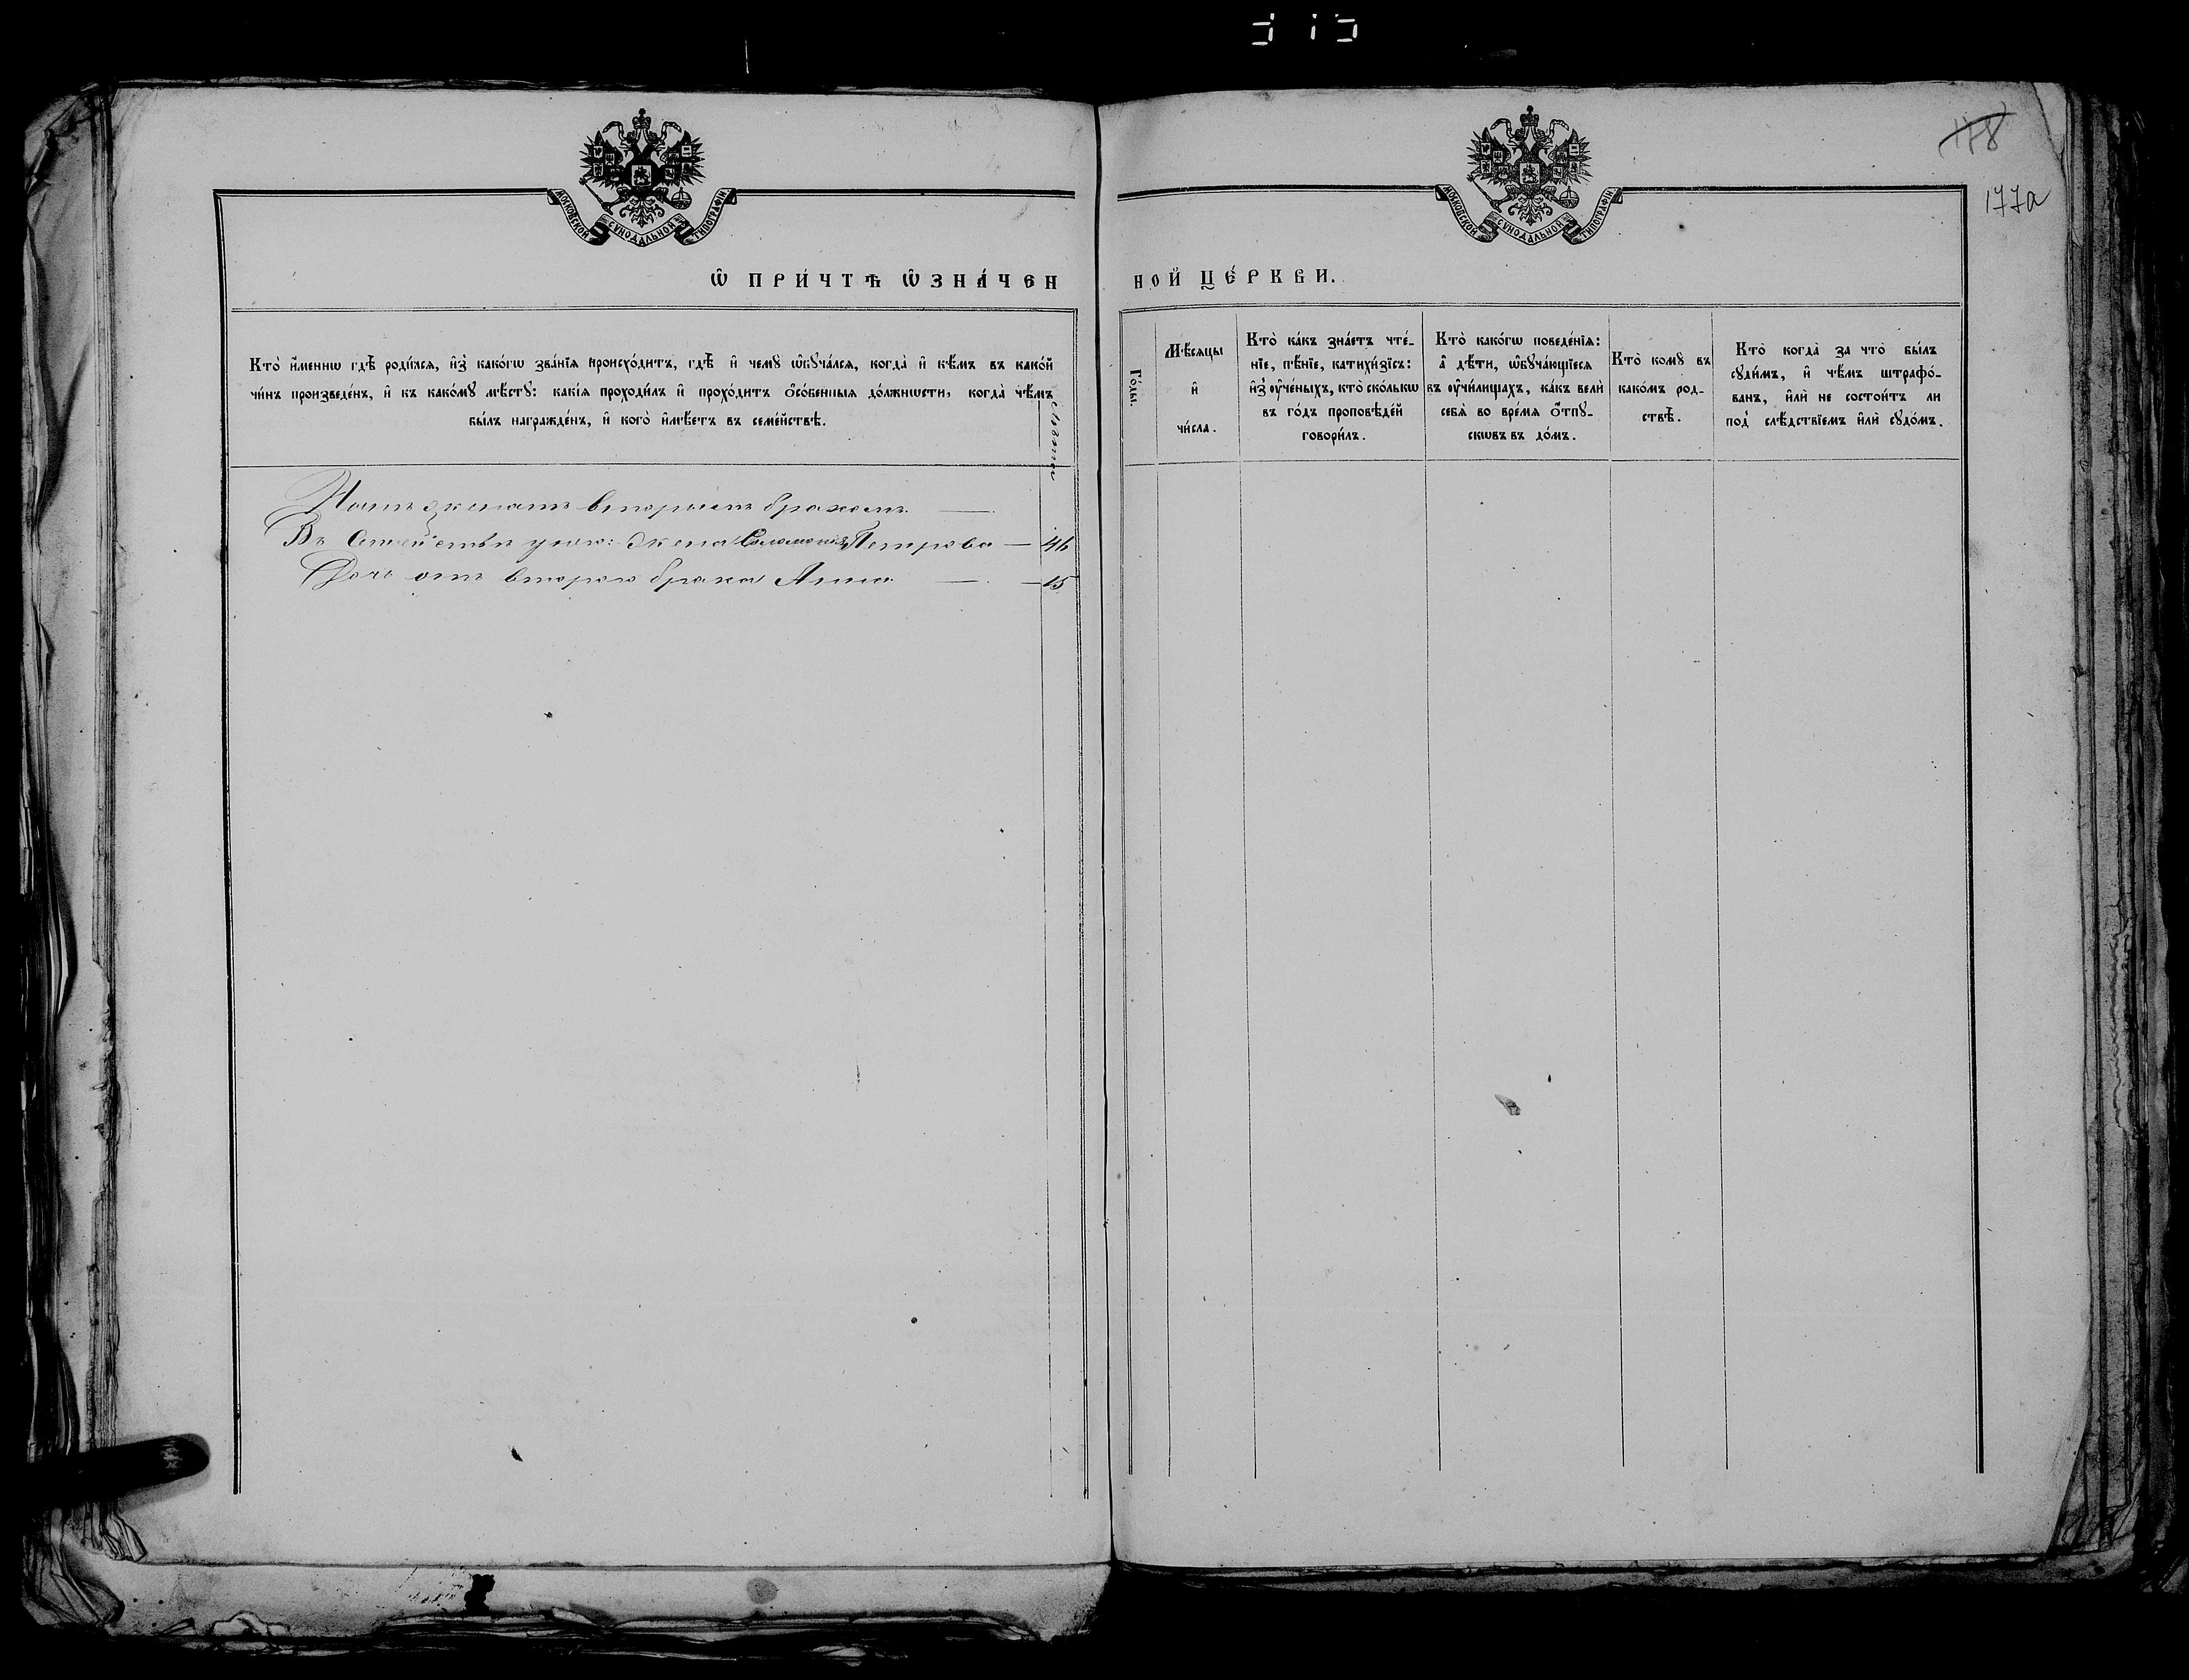 178
177а
МОСКОВСКОЙ СѴНОДАЛЬНОЙ ТИПОГРАФІИ
МОСКОВСКОЙ СѴНОДАЛЬНОЙ ТИПОГРАФІИ
Ѡ҆ ПРИ́ЧТѢ Ѡ҆ЗНА́ЧЕН
НОЙ ЦЕ́РКВИ.
Кто̀ и҆́меннѡ гдѣ̀ роди́лсѧ, и҆з̾ како́гѡ зва́нїѧ происхо́дитъ, гдѣ̀ и҆ чемꙋ̀ ѡ҆бꙋча́лсѧ, когда̀ и҆ кѣ́мъ въ како́й
чи́нъ произведе́нъ, и҆ къ како́мꙋ мѣ́стꙋ: какі́ѧ проходи́лъ и҆ прохо́дитъ ѻ҆со́бенныѧ до́лжнѡсти, когда̀ чѣ́мъ
бы́лъ награжде́нъ, и҆ кого̀ и҆мѣ́етъ въ семе́йствѣ.
Лѣта
Го́ды.
Мѣ́сѧцы
и҆
чи́сла.
Кто̀ ка́къ зна́етъ чте́-
нїе, пѣ́нїе, катихи́зїсъ:
и҆з̾ ᲂу҆че́ныхъ, кто̀ ско́лькѡ
въ го́дъ проповѣ́дей
говори́лъ.
Кто̀ како́гѡ поведе́нїѧ:
а҆ дѣ́ти, ѡ҆бꙋча́ющїесѧ
въ ᲂу҆чи́лищахъ, ка́къ велѝ
себѧ̀ во вре́мѧ ѻ҆́тпꙋ-
скѡвъ въ до́мъ.
Кто̀ комꙋ̀ въ
како́мъ род-
ствѣ̀.
Кто̀ когда̀ за что̀ бы́лъ
сꙋди́мъ, и҆ чѣ́мъ штрафо́-
ванъ, и҆лѝ не состои́тъ ли
под̾ слѣ́дствїемъ и҆лѝ сꙋдо́мъ.
женатъ вторымъ бракомъ —
Въ Семействѣ у него: Жена Саломонія Петрова — 46
Дочь отъ второго брака Анна — — 15